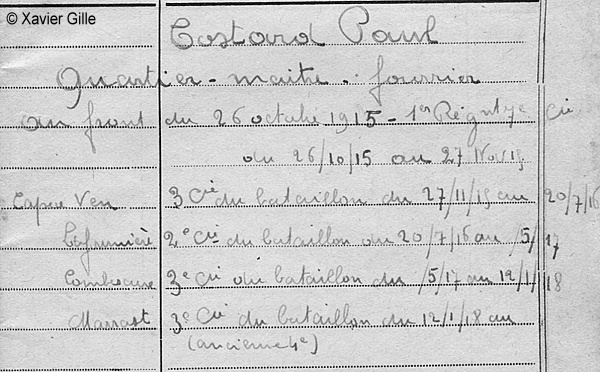 © Xavier Gille
Costard Paul
Quartier-maître. fourrier
au front du 26 octobre 1915 - 1er Régnt 7e Cie
du 26/10/15 au 27 Nov 15
3 Cie du bataillon du 27/11/15 au 20/7/16
2e Cie du bataillon du 20/7/16 au /5/17
3e Cie du bataillon du /5/17 au 12/1/18
Marrast 3e Cie du bataillon du 12/1/18 au
(ancienne 4e)